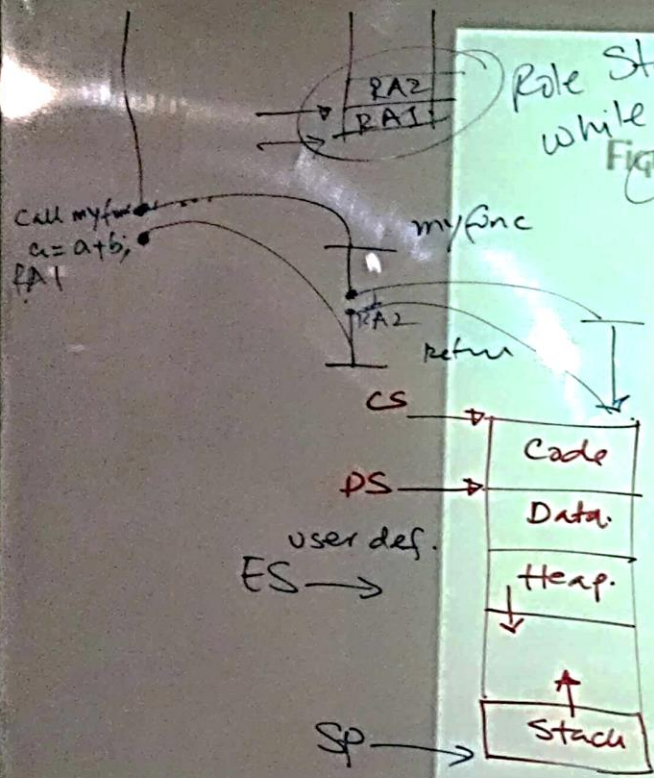 RA2
RA1
Role St
while
Fig
Call myfunc
a = a+b;
RA1
myfunc
RA2
Return
CS
Code
DS
Data.
user def.
ES
Heap.
SP
Stack